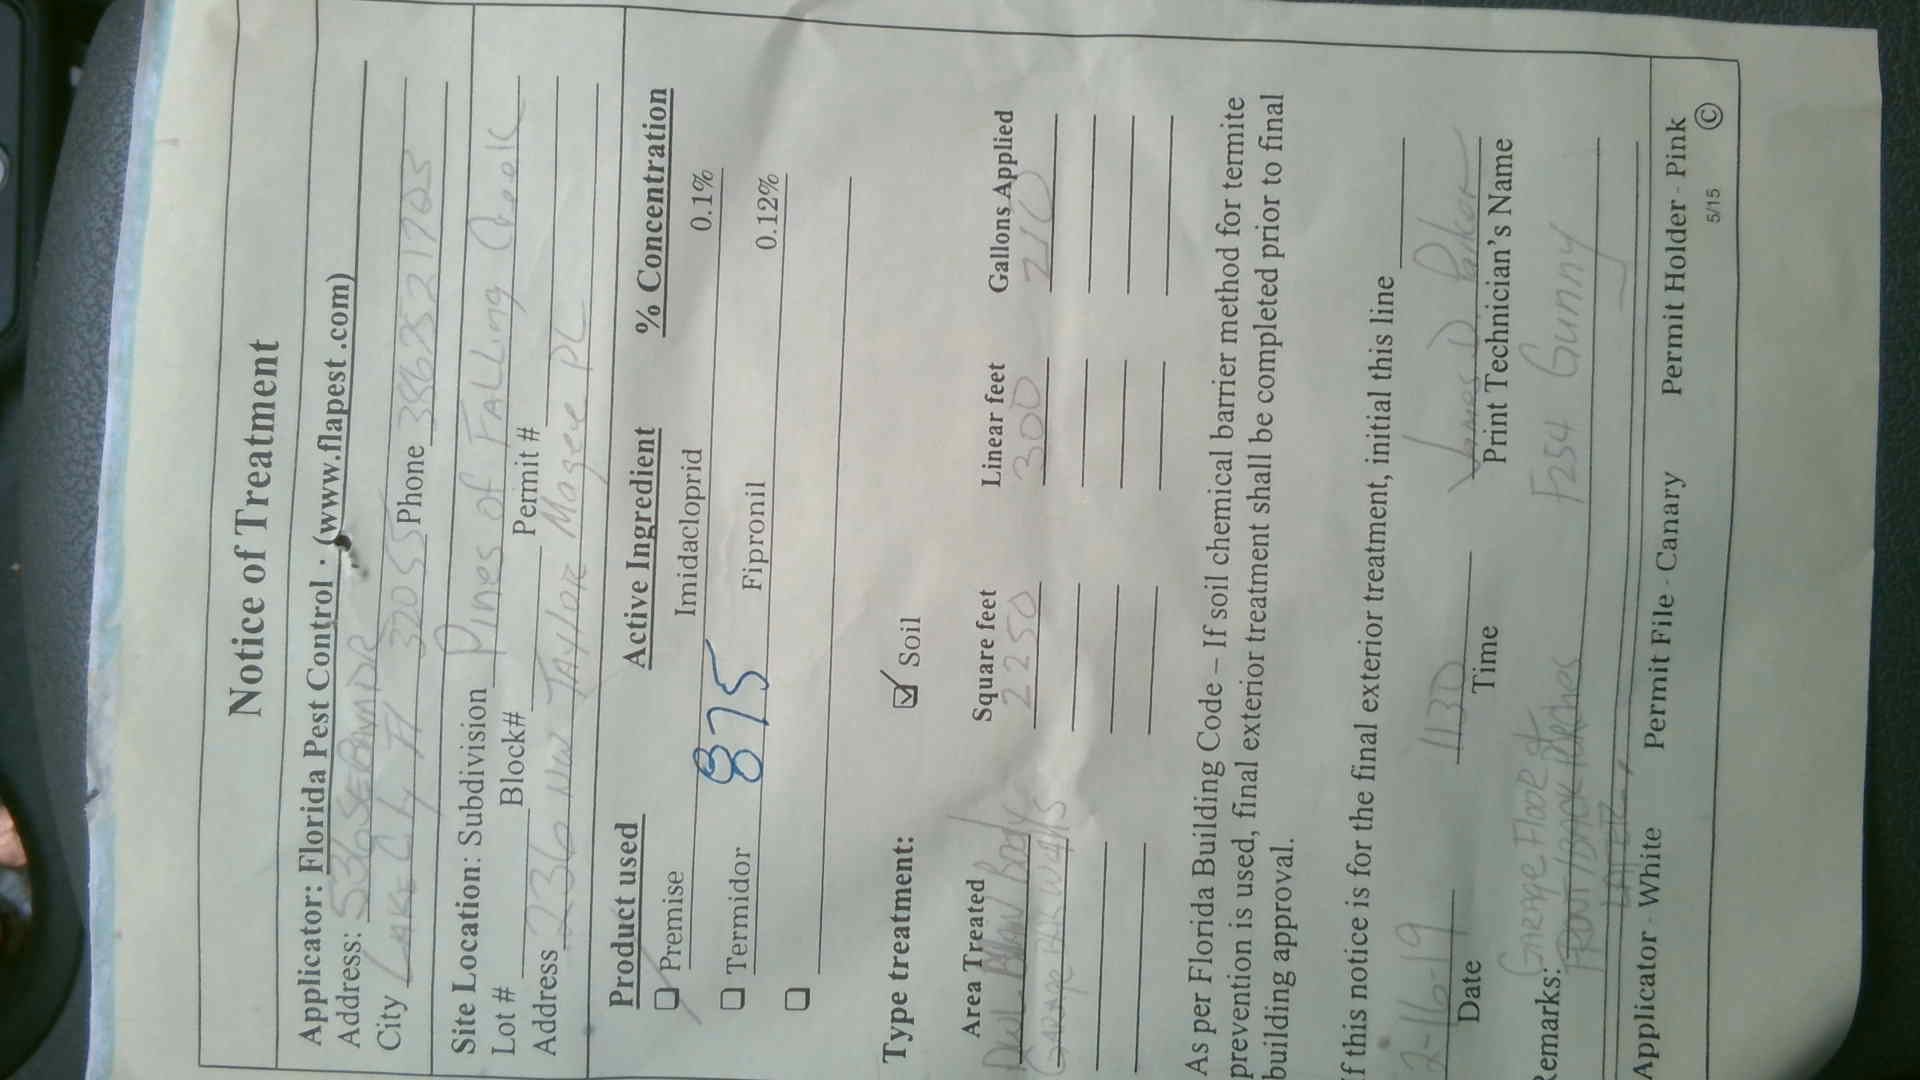 Notice of Treatment
Applicator: Florida Pest Control · (www.flapest.com)
Address: 536 SE BAYA DR
City LAKE City Fl 32055 Phone 3867521703
Site Location: Subdivision Pines of FALLing Creek
Lot # Block# Permit #
Address 236 NW TAYLOR Magee PL
Product used Active Ingredient % Concentration
Premise Imidacloprid 0.1%
Termidor Fipronil 0.12%
875
Type treatment: Soil
Area Treated Square feet Linear feet Gallons Applied
2250 300 210
GARAge walls
As per Florida Building Code – If soil chemical barrier method for termite
prevention is used, final exterior treatment shall be completed prior to final
building approval.
If this notice is for the final exterior treatment, initial this line
2-16-19 1130 James D Parker
Date Time Print Technician's Name
Remarks: GARAge Floor F254 Gunny
FRONT/BACK PORches
LATER.
Applicator - White Permit File - Canary Permit Holder - Pink
5/15 ©